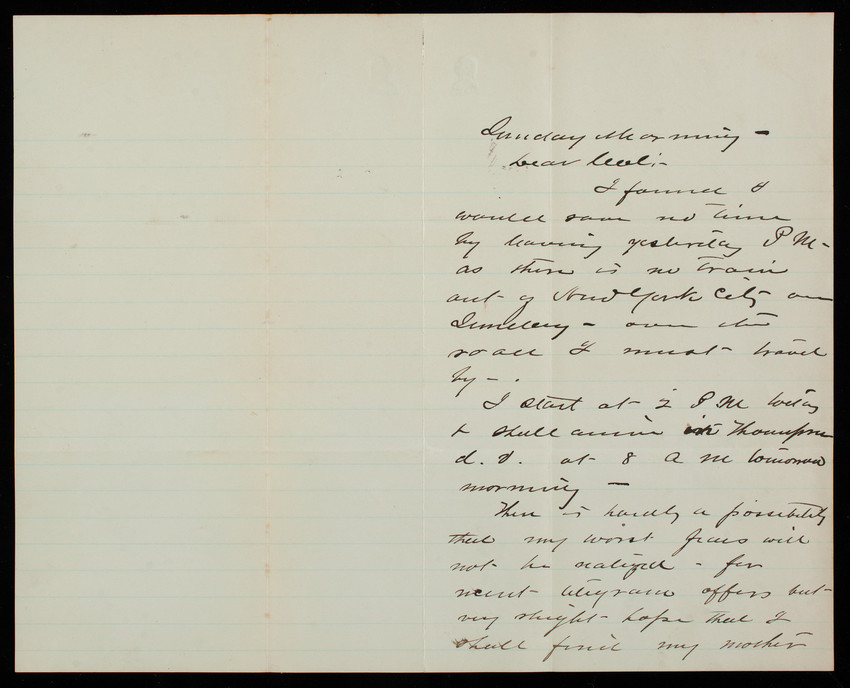 Sunday Morning -
Dear Col:-
I found I
would save no time
by leaving yesterday P M -
as there is no train
out of New York City on
Sunday - over the
road I must travel
by - .
I start at 2 P M today
& shall arrive in Thompson
at 8 A M tomorrow
morning -
There is hardly a possibility
that my worst fears will
not be realized - for
recent telegram offers but
very slight hope that I
shall find my mother